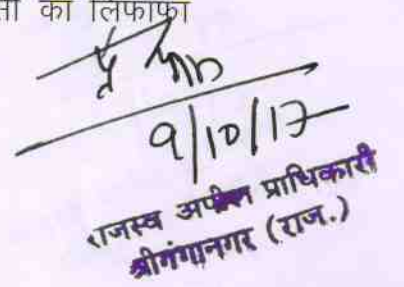 का लिफाफा
9/10/17
राजस्व अपील प्राधिकारी
श्रीगंगानगर (राज.)